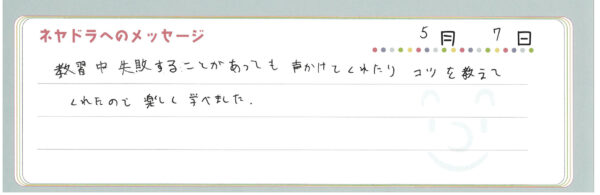 ネヤドラへのメッセージ
5月 7日
教習中 失敗することがあっても 声かけてくれたり コツを教えて
くれたので 楽しく 学べました.